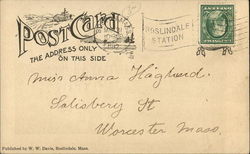 POST CARD
THE ADDRESS ONLY
ON THIS SIDE
ROSLINDALE
STATION
Miss Anna Höglund.
Salisbery St
Worcester Mass.
Published by W. W. Davis, Roslindale, Mass.